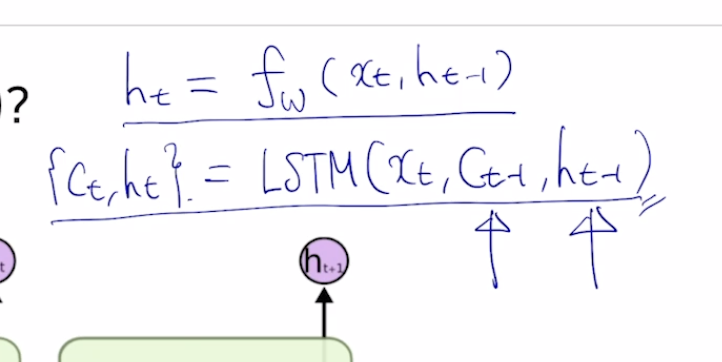 ?
hₜ = f_w (xₜ, hₜ₋₁)
{Cₜ, hₜ} = LSTM(xₜ, Cₜ₋₁, hₜ₋₁)
t
hₜ₊₁